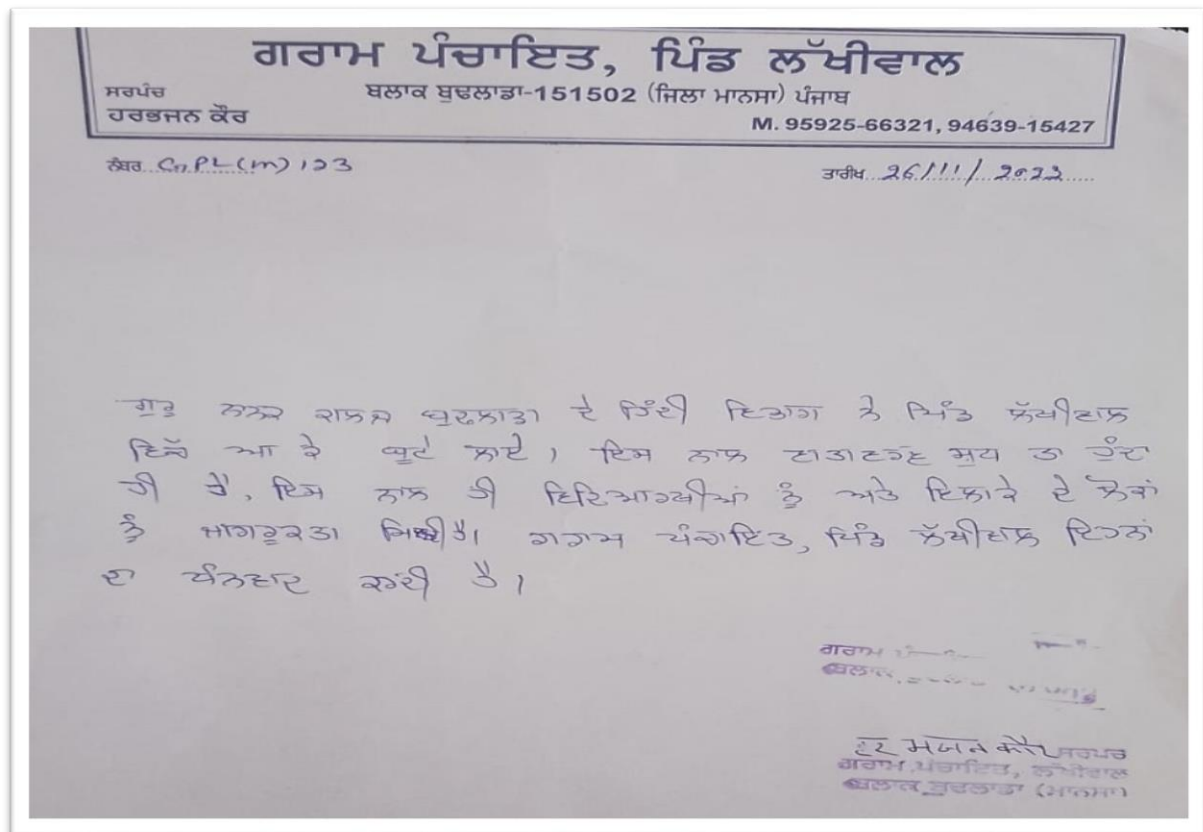 ਗਰਾਮ ਪੰਚਾਇਤ, ਪਿੰਡ ਲੱਖੀਵਾਲ
ਸਰਪੰਚ
ਬਲਾਕ ਬੁਢਲਾਡਾ-151502 (ਜਿਲਾ ਮਾਨਸਾ) ਪੰਜਾਬ
ਹਰਭਜਨ ਕੌਰ
M. 95925-66321, 94639-15427
ਨੰਬਰ GnPL(m) 123
ਤਾਰੀਖ 26/11/2022
ਗੁਰੂ ਨਾਨਕ ਕਾਲਜ ਬੁਢਲਾਡਾ ਦੇ ਹਿੰਦੀ ਵਿਭਾਗ ਨੇ ਪਿੰਡ ਲੱਖੀਵਾਲ
ਵਿੱਚ ਆ ਕੇ ਬੂਟੇ ਲਾਏ। ਇਸ ਨਾਲ ਵਾਤਾਵਰਣ ਸੁਧ ਤਾ ਹੁੰਦਾ
ਹੀ ਹੈ, ਇਸ ਨਾਲ ਹੀ ਵਿਦਿਆਰਥੀਆਂ ਨੂੰ ਅਤੇ ਇਲਾਕੇ ਦੇ ਲੋਕਾਂ
ਨੂੰ ਜਾਗਰੂਕਤਾ ਮਿਲਦੀ ਹੈ। ਗਰਾਮ ਪੰਚਾਇਤ, ਪਿੰਡ ਲੱਖੀਵਾਲ ਇਹਨਾਂ
ਦਾ ਧੰਨਵਾਦ ਕਰਦੀ ਹੈ।
ਗਰਾਮ
ਬਲਾਕ
ਸਰਪੰਚ
ਗਰਾਮ ਪੰਚਾਇਤ, ਲੱਖੀਵਾਲ
ਬਲਾਕ ਬੁਢਲਾਡਾ (ਮਾਨਸਾ)